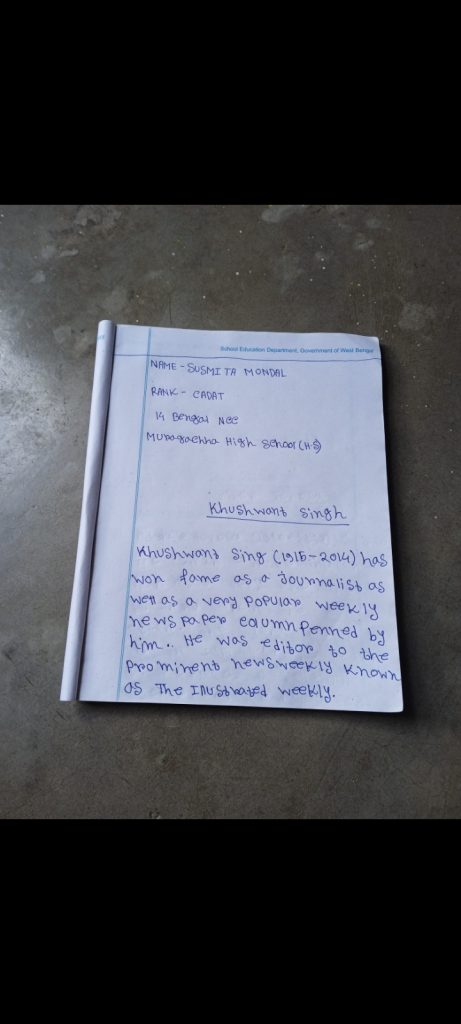 School Education Department, Government of West Bengal
NAME - SUSMITA MONDAL
RANK - CADAT
14 Bengal NCC
Muragachha High School (H.S)
Khushwant Singh
Khushwant Sing (1915-2014) has
won fame as a Journalist as
well as a very Popular weekly
news paper column penned by
him.. He was editor to the
Prominent newsweekly Known
as The Illustrated weekly.